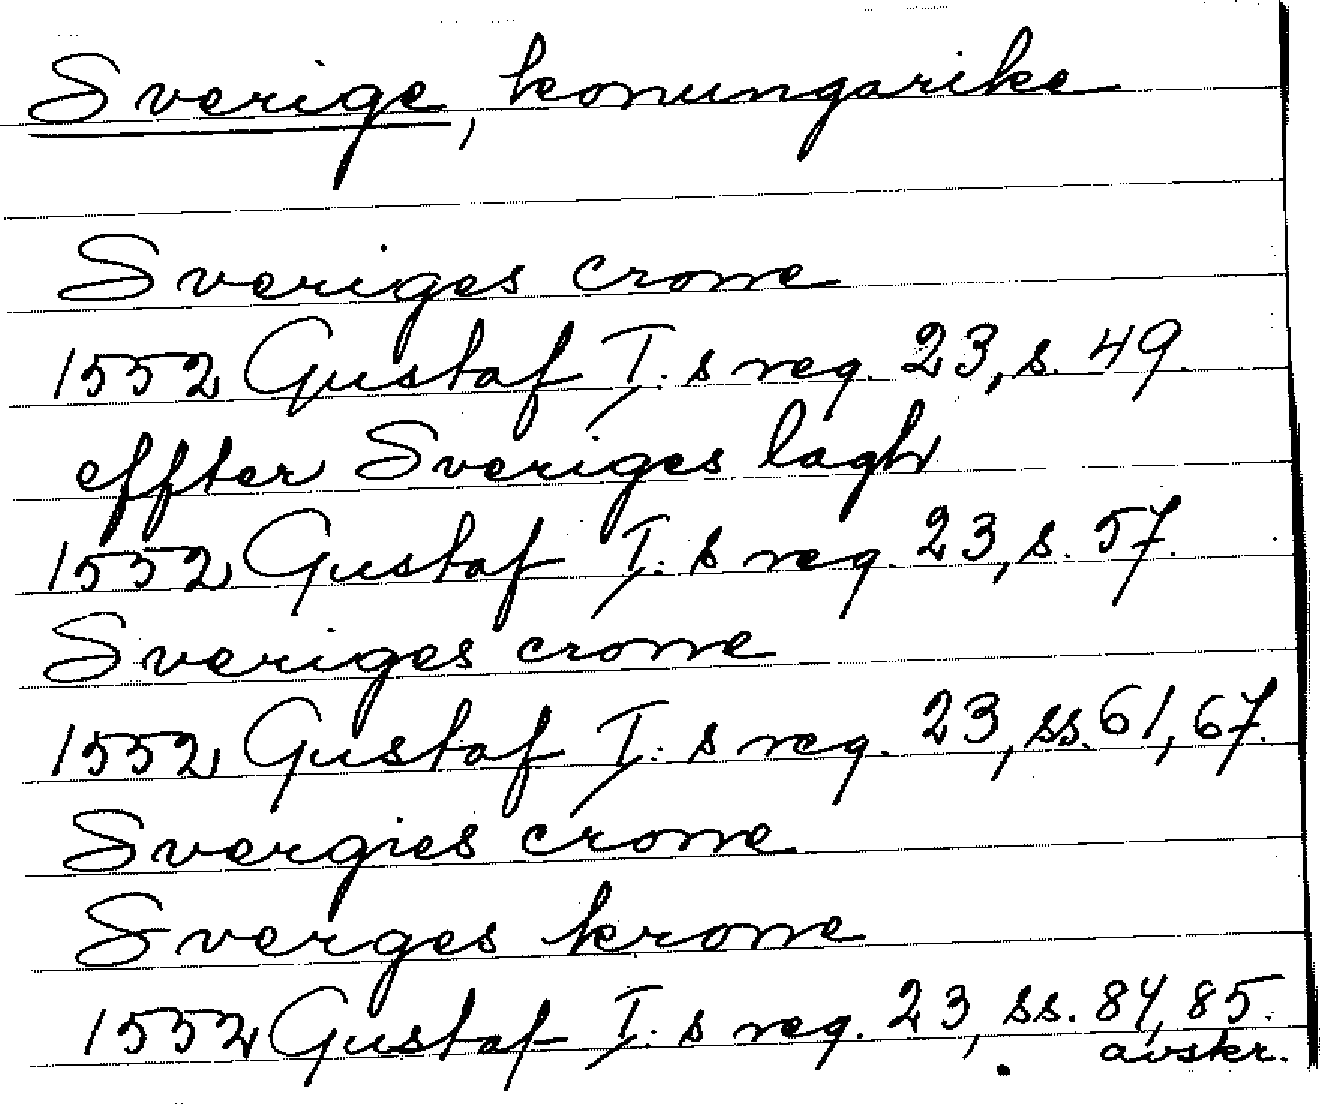 Sverige, konungarike
Sveriges crone
1552 Gustaf I:s reg. 23, s. 49.
effter Sveriges lagh
1552 Gustaf I:s reg. 23, s. 57.
Sveriges crone
1552 Gustaf I:s reg. 23, ss. 61, 67.
Svergies crone
Sverges krone
1552 Gustaf I:s reg. 23, ss. 84, 85.
avskr.